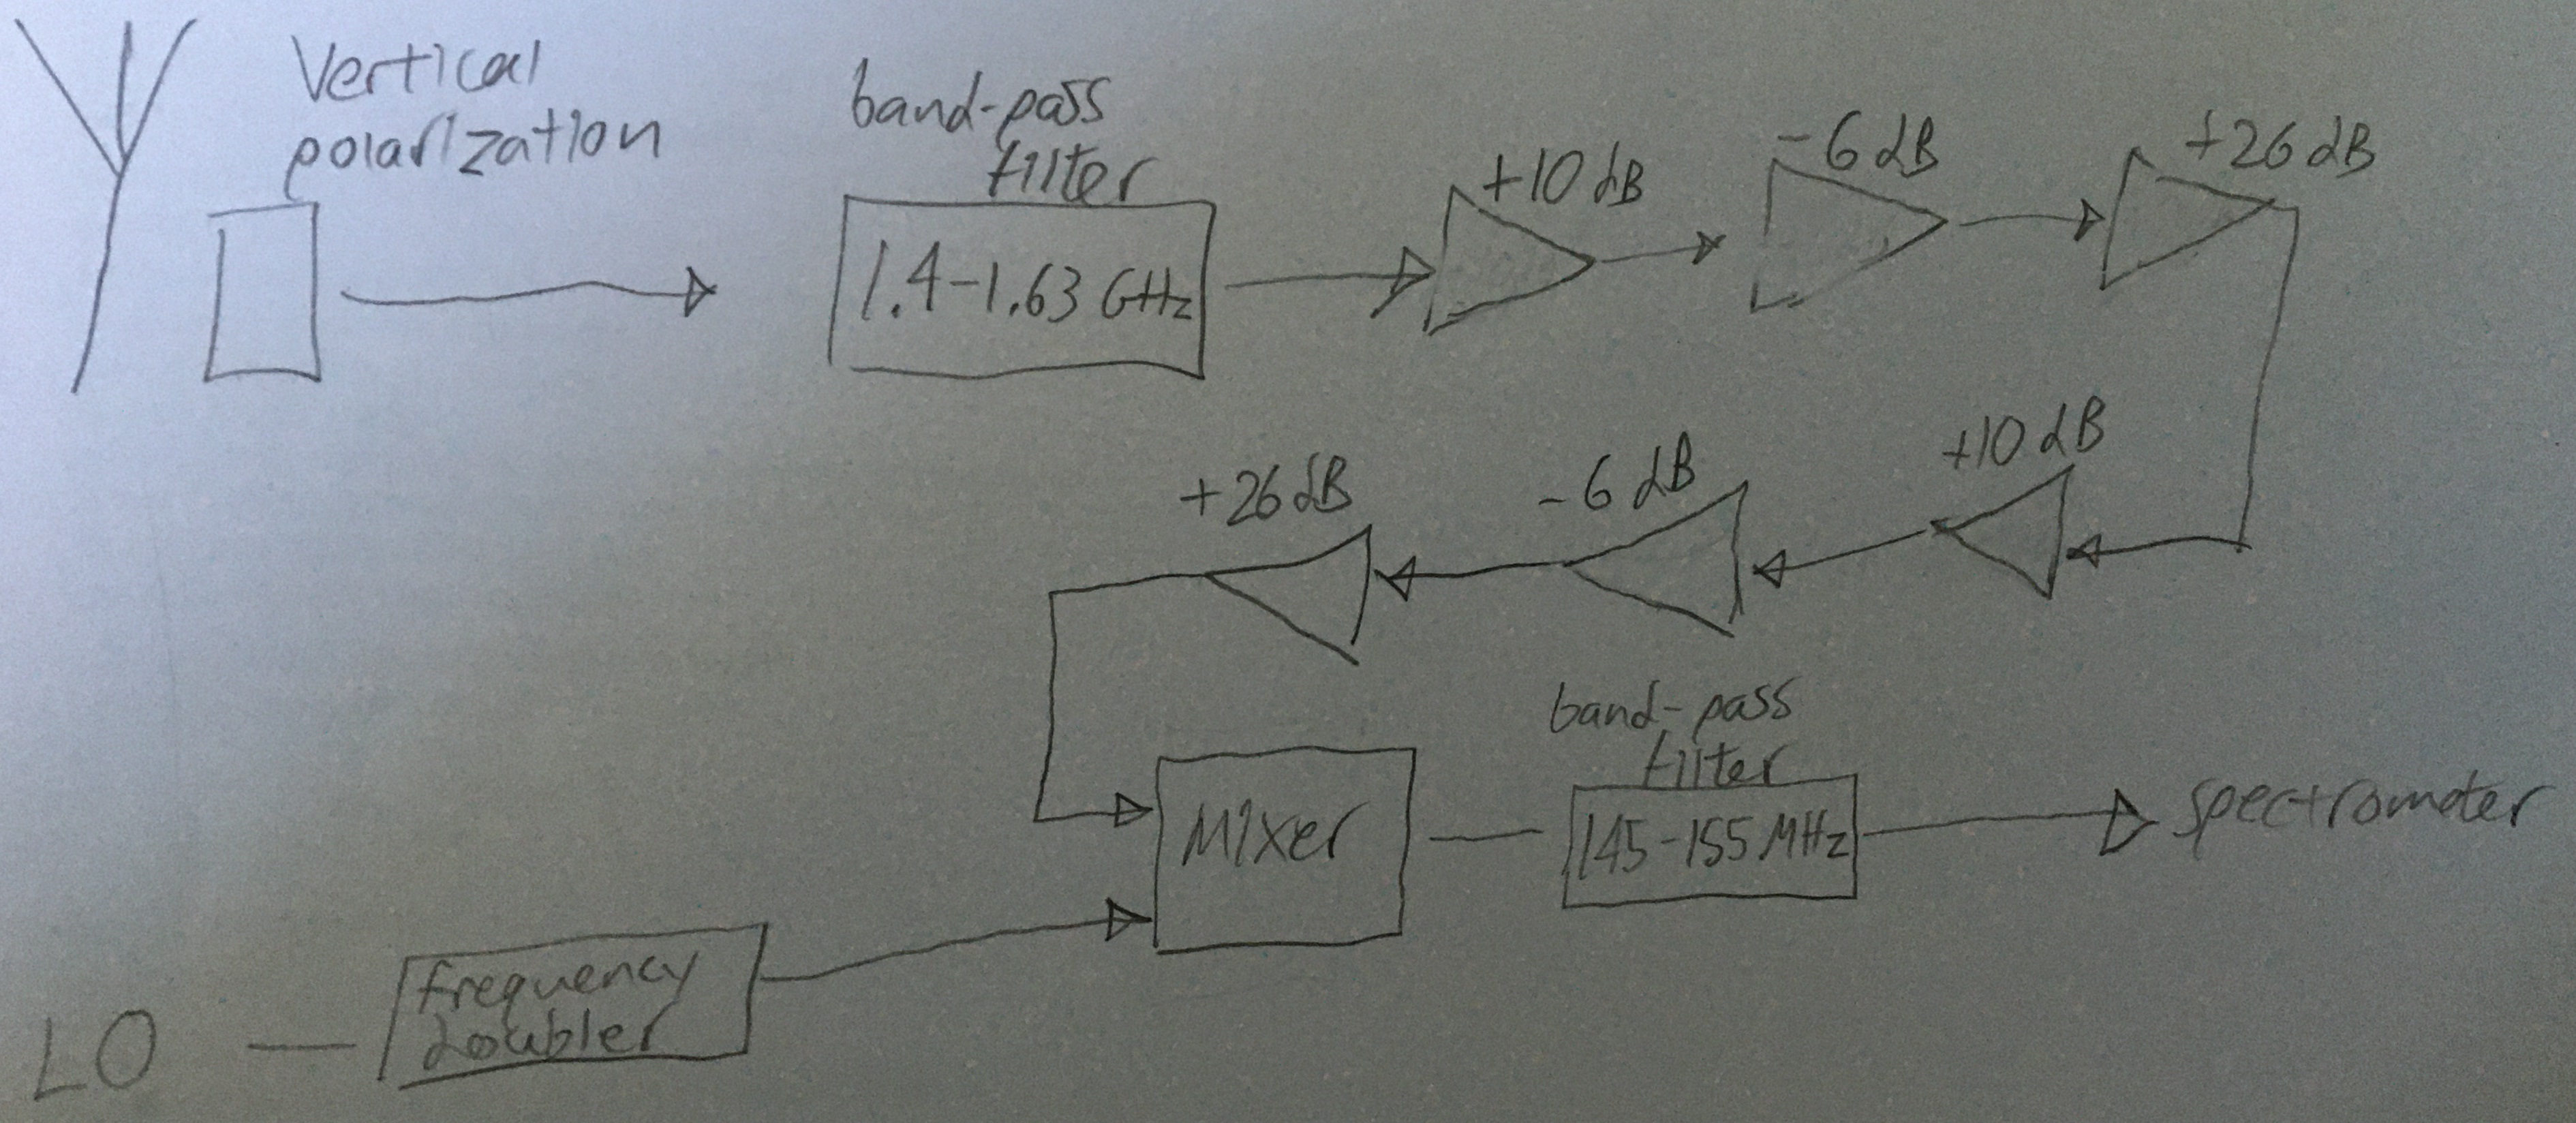 Vertical
polarization
band-pass
filter
1.4-1.63 GHz
+10 dB
-6 dB
+26 dB
+10 dB
-6 dB
+26 dB
Mixer
band-pass
filter
145-155 MHz
spectrometer
LO
frequency
doubler